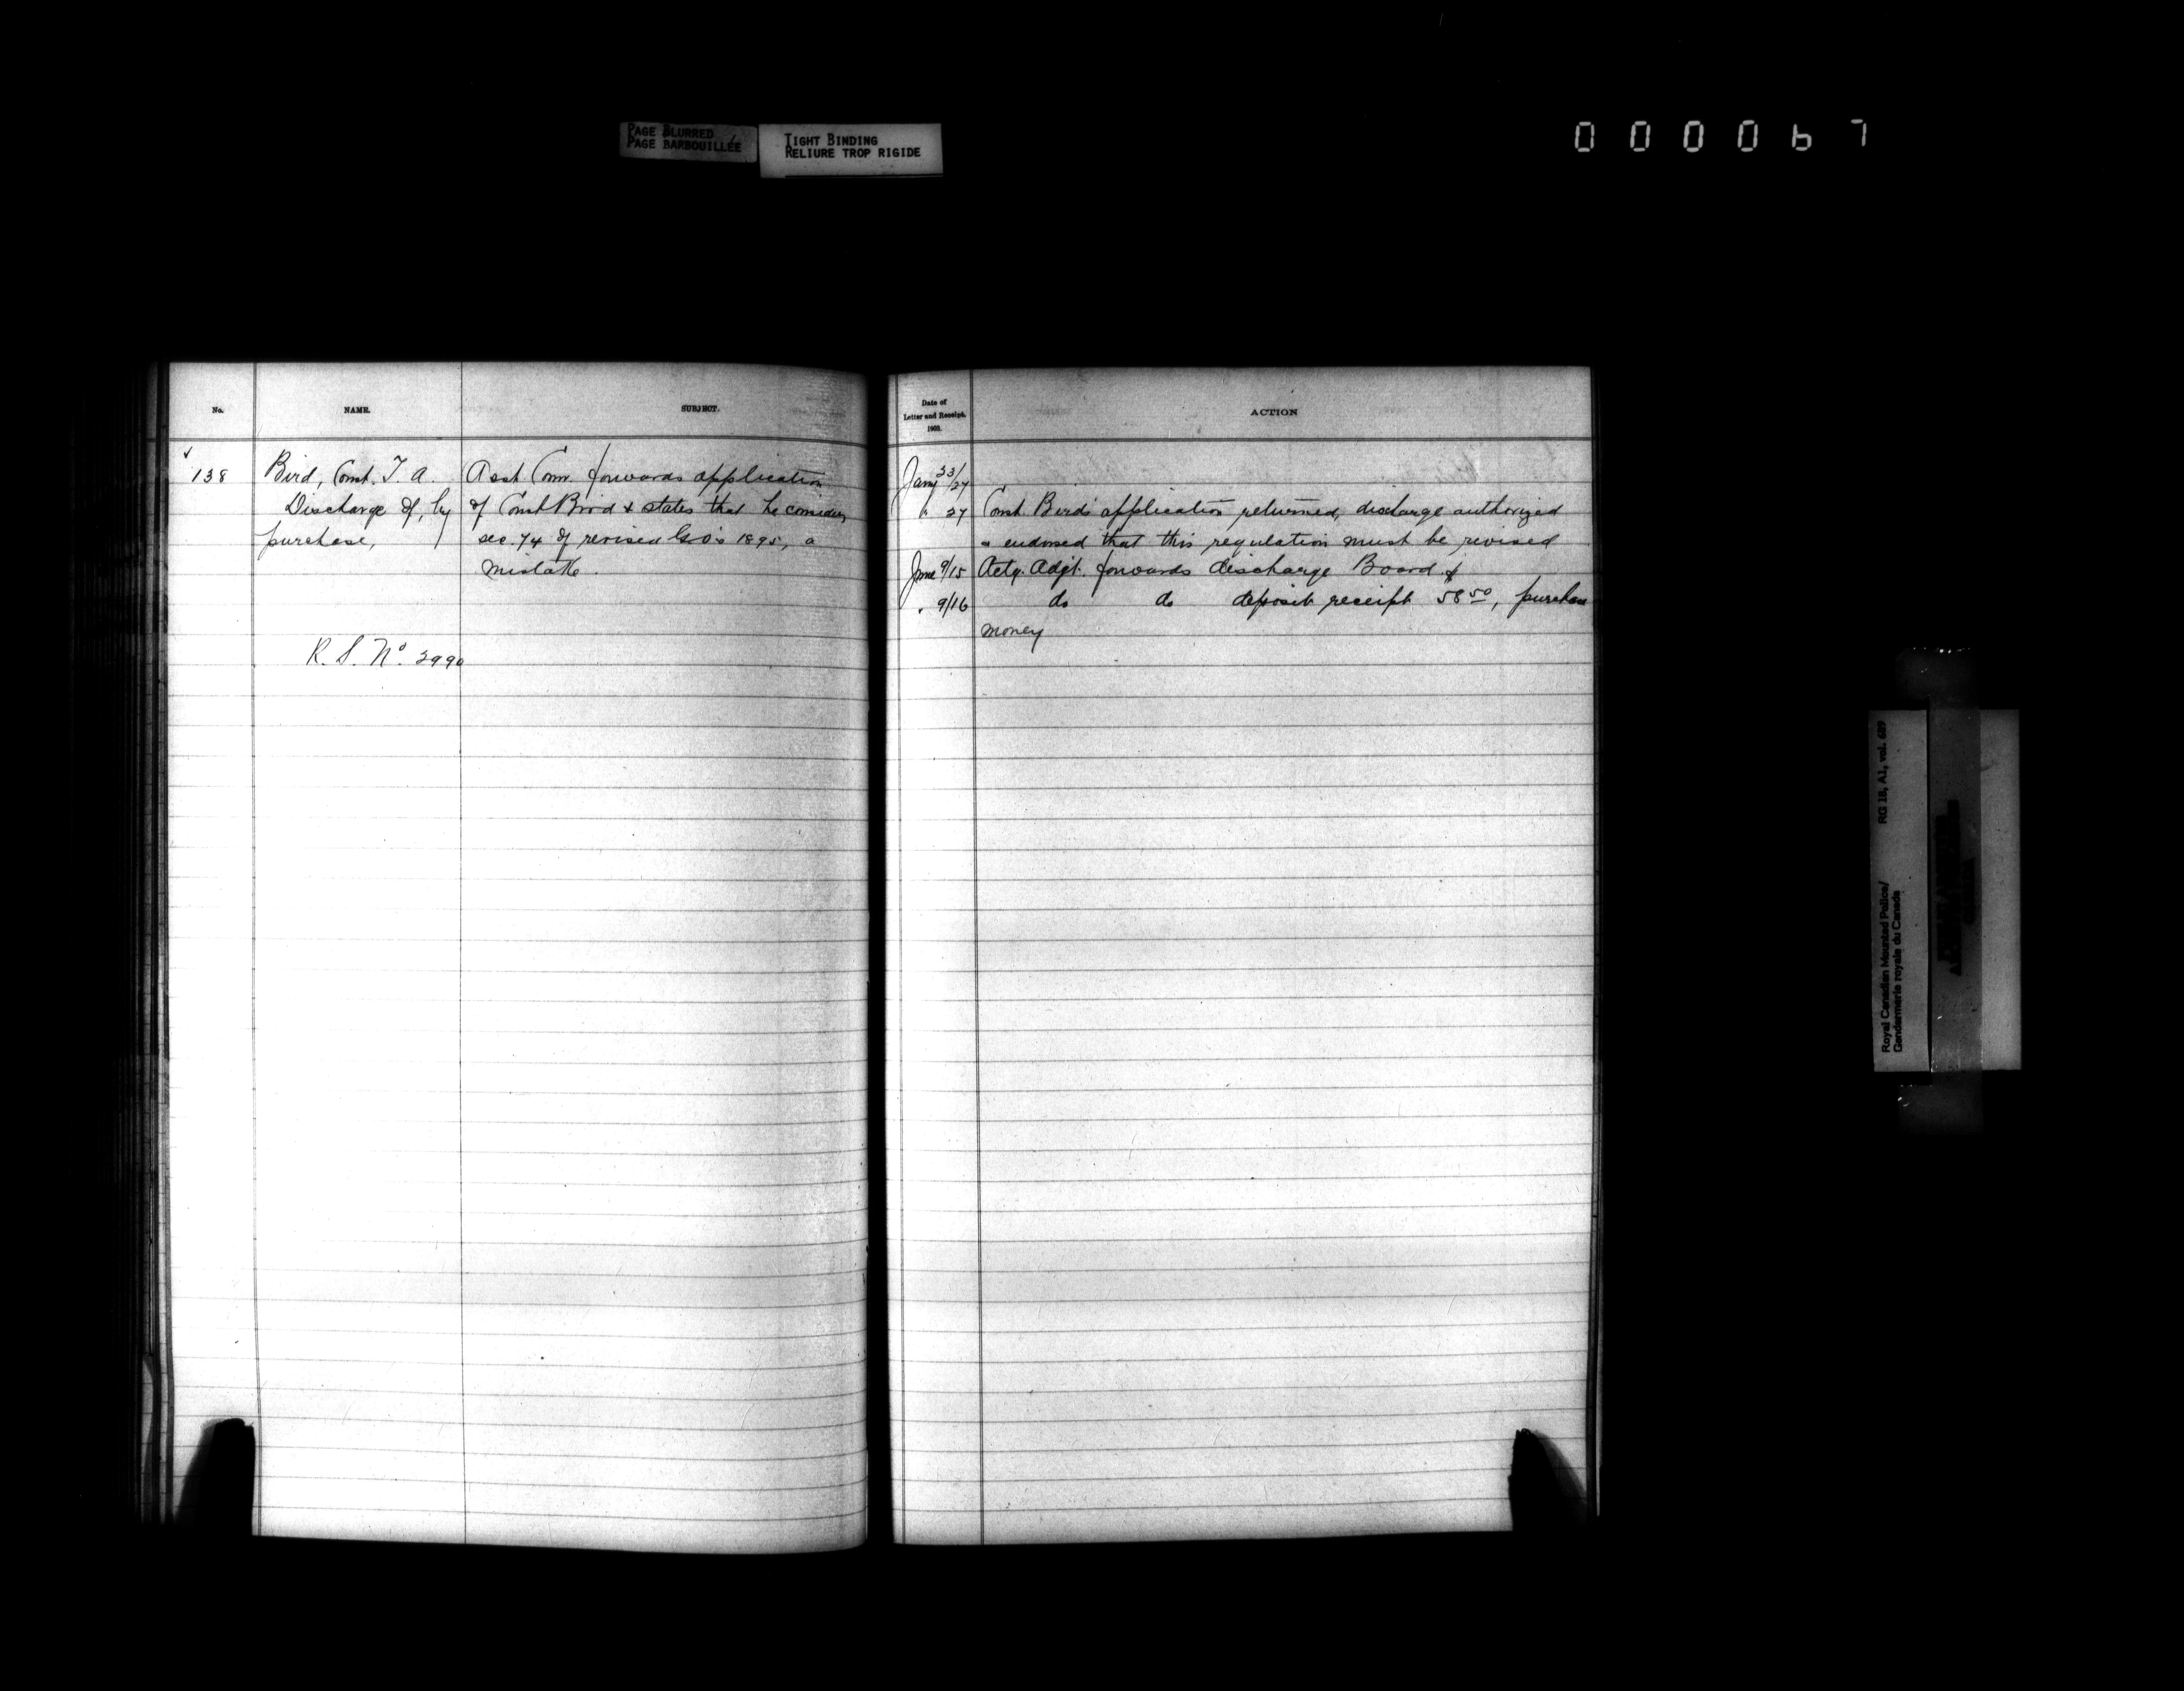 PAGE BLURRED
PAGE BARBOUILLÉE
TIGHT BINDING
RELIURE TROP RIGIDE
000067
No.
NAME.
SUBJECT.
138
Bird, Const. T. A.
Discharge of, by
purchase,
R. S. No. 2990
Asst Comr. forwards application
of Const Bird & states that he considers
sec. 74 of revised G.O's 1895, a
mistake.
Date of
Letter and Receipt.
1900.
ACTION
Jany 23/27
" 27 Const. Bird's application returned, discharge authorized
& endorsed that this regulation must be revised
June 9/15 Actg. Adjt. forwards discharge Board &
" 9/16 do do deposit receipt 58 50, purchase
money
Royal Canadian Mounted Police/
Gendarmerie royale du Canada
RG 18, A1, vol. 689